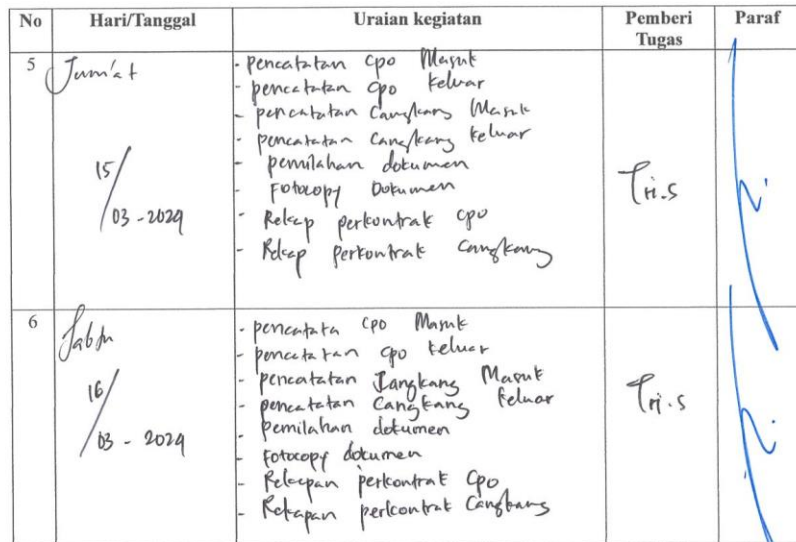 No Hari/Tanggal Uraian kegiatan Pemberi Tugas Paraf
5 Jum'at
15/03-2024
- pencatatan cpo Masuk
- pencatatan cpo keluar
- pencatatan Cangkang Masuk
- pencatatan cangkang keluar
- pemilahan dokumen
- Fotocopy Dokumen
- Rekap perkontrak cpo
- Rekap perkontrak cangkang
Tri.S
6 Sabtu
16/03-2024
- pencatata cpo Masuk
- pencatatan cpo keluar
- pencatatan Cangkang Masuk
- pencatatan Cangkang keluar
- pemilahan dokumen
- fotocopy dokumen
- Rekapan perkontrak Cpo
- Rekapan perkontrak Cangkang
Tri.S